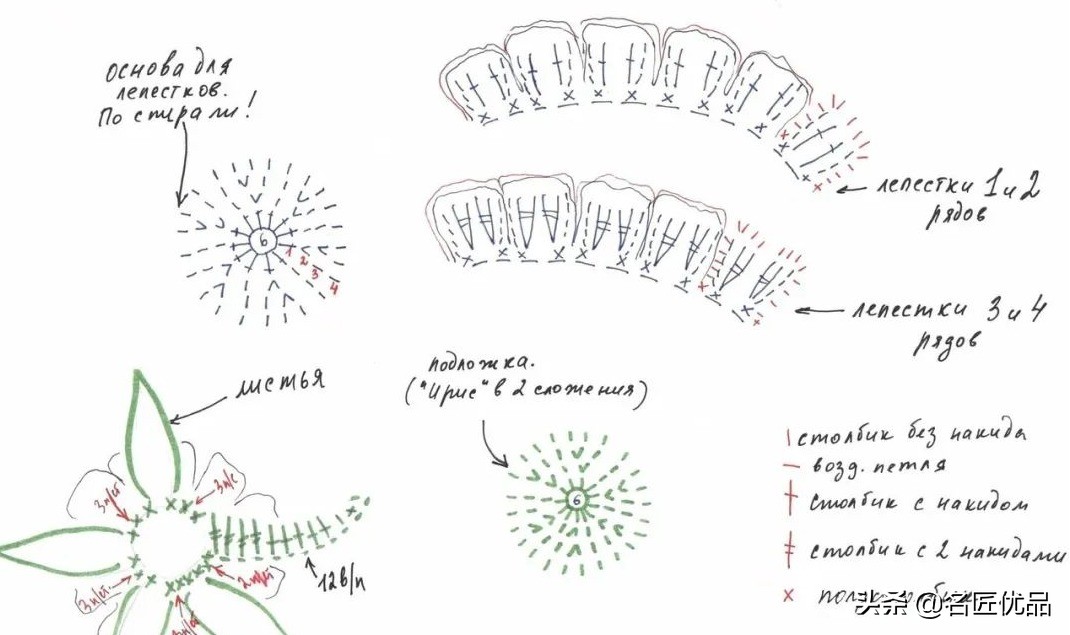 основа для
лепестков.
По спирали!
6
1
2
3
4
лепестки 1 и 2
рядов
лепестки 3 и 4
рядов
листья
подложка.
("Ирис" в 2 сложения)
6
3п/ст
3п/с
3п/ст.
2п/ст
12 в/п
столбик без накида
возд. петля
столбик с накидом
столбик с 2 накидами
头条 @名匠优品